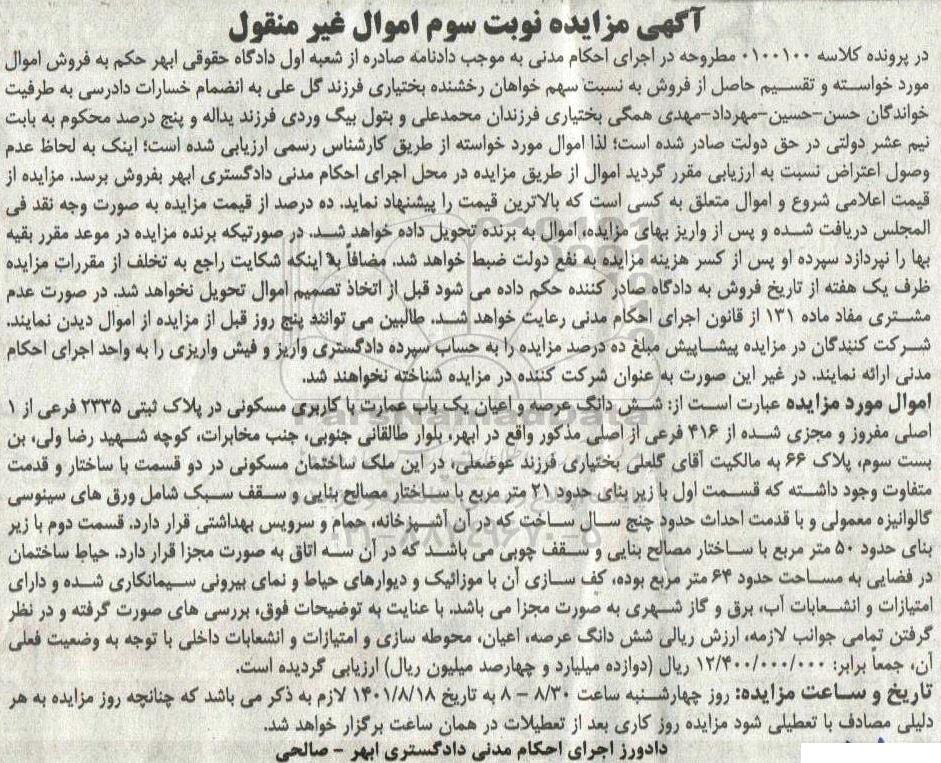 آگهی مزایده نوبت سوم اموال غیر منقول
در پرونده کلاسه ۰۱۰۰۱۰۰ مطروحه در اجرای احکام مدنی به موجب دادنامه صادره از شعبه اول دادگاه حقوقی ابهر حکم به فروش اموال
مورد خواسته و تقسیم حاصل از فروش به نسبت سهم خواهان رخشنده بختیاری فرزند گل علی به انضمام خسارات دادرسی به طرفیت
خواندگان حسن-حسین-مهرداد-مهدی همگی بختیاری فرزندان محمدعلی و بتول بیگ وردی فرزند یداله و پنج درصد محکوم به بابت
نیم عشر دولتی در حق دولت صادر شده است؛ لذا اموال مورد خواسته از طریق کارشناس رسمی ارزیابی شده است؛ اینک به لحاظ عدم
وصول اعتراض نسبت به ارزیابی مقرر گردید اموال از طریق مزایده در محل اجرای احکام مدنی دادگستری ابهر بفروش برسد. مزایده از
قیمت اعلامی شروع و اموال متعلق به کسی است که بالاترین قیمت را پیشنهاد نماید. ده درصد از قیمت مزایده به صورت وجه نقد فی
المجلس دریافت شده و پس از واریز بهای مزایده، اموال به برنده تحویل داده خواهد شد. در صورتیکه برنده مزایده در موعد مقرر بقیه
بها را نپردازد سپرده او پس از کسر هزینه مزایده به نفع دولت ضبط خواهد شد. مضافاً به اینکه شکایت راجع به تخلف از مقررات مزایده
ظرف یک هفته از تاریخ فروش به دادگاه صادر کننده حکم داده می شود قبل از اتخاذ تصمیم اموال تحویل نخواهد شد. در صورت عدم
مشتری مفاد ماده ۱۳۱ از قانون اجرای احکام مدنی رعایت خواهد شد. طالبین می توانند پنج روز قبل از مزایده از اموال دیدن نمایند.
شرکت کنندگان در مزایده پیشاپیش مبلغ ده درصد مزایده را به حساب سپرده دادگستری واریز و فیش واریزی را به واحد اجرای احکام
مدنی ارائه نمایند. در غیر این صورت به عنوان شرکت کننده در مزایده شناخته نخواهند شد.
اموال مورد مزایده عبارت است از: شش دانگ عرصه و اعیان یک باب عمارت با کاربری مسکونی در پلاک ثبتی ۲۳۳۵ فرعی از ۱
اصلی مفروز و مجزی شده از ۴۱۶ فرعی از اصلی مذکور واقع در ابهر، بلوار طالقانی جنوبی، جنب مخابرات، کوچه شهید رضا ولی، بن
بست سوم، پلاک ۶۶ به مالکیت آقای گلعلی بختیاری فرزند عوضعلی، در این ملک ساختمان مسکونی در دو قسمت با ساختار و قدمت
متفاوت وجود داشته که قسمت اول با زیر بنای حدود ۲۱ متر مربع با ساختار مصالح بنایی و سقف سبک شامل ورق های سینوسی
گالوانیزه معمولی و با قدمت احداث حدود چنج سال ساخت که در آن آشپزخانه، حمام و سرویس بهداشتی قرار دارد. قسمت دوم با زیر
بنای حدود ۵۰ متر مربع با ساختار مصالح بنایی و سقف چوبی می باشد که در آن سه اتاق به صورت مجزا قرار دارد. حیاط ساختمان
در فضایی به مساحت حدود ۶۴ متر مربع بوده، کف سازی آن با موزائیک و دیوارهای حیاط و نمای بیرونی سیمانکاری شده و دارای
امتیازات و انشعابات آب، برق و گاز شهری به صورت مجزا می باشد. با عنایت به توضیحات فوق، بررسی های صورت گرفته و در نظر
گرفتن تمامی جوانب لازمه، ارزش ریالی شش دانگ عرصه، اعیان، محوطه سازی و امتیازات و انشعابات داخلی با توجه به وضعیت فعلی
آن، جمعاً برابر: ۱۲/۴۰۰/۰۰۰/۰۰۰ ریال (دوازده میلیارد و چهارصد میلیون ریال) ارزیابی گردیده است.
تاریخ و ساعت مزایده: روز چهارشنبه ساعت ۸/۳۰ – ۸ به تاریخ ۱۴۰۱/۸/۱۸ لازم به ذکر می باشد که چنانچه روز مزایده به هر
دلیلی مصادف با تعطیلی شود مزایده روز کاری بعد از تعطیلات در همان ساعت برگزار خواهد شد.
دادورز اجرای احکام مدنی دادگستری ابهر - صالحی